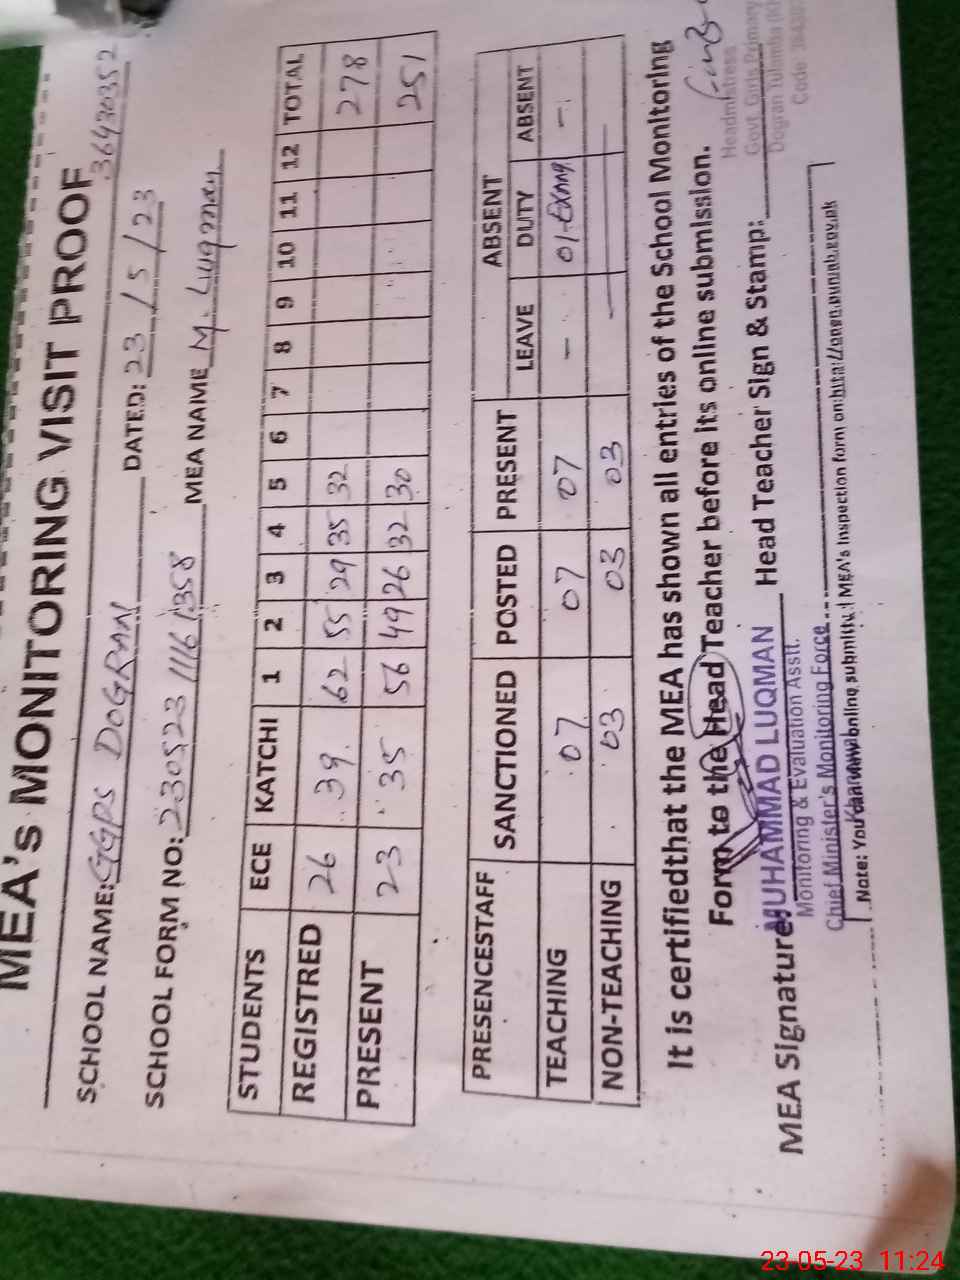 MEA's MONITORING VISIT PROOF
36430352
SCHOOL NAME: GGPS DOGRAN DATED: 23/5/23
SCHOOL FORM NO: 230523 1116 1358 MEA NAME M. Luqman
STUDENTS ECE KATCHI 1 2 3 4 5 6 7 8 9 10 11 12 TOTAL
REGISTRED 26 39 62 55 29 35 32 278
PRESENT 23 35 56 49 26 32 30 251
PRESENCESTAFF SANCTIONED POSTED PRESENT ABSENT
LEAVE DUTY ABSENT
TEACHING 07 07 07 – 01-Exam –
NON-TEACHING 03 03 03
It is certifiedthat the MEA has shown all entries of the School Monitoring
Form to the Head Teacher before its online submission.
Headmistress
Govt. Girls Primary
Dogran Tulamba
Code
MEA Signature: Head Teacher Sign & Stamp:
MUHAMMAD LUQMAN
Monitoring & Evaluation Asstt.
Chief Minister's Monitoring Force
Note: You can online submitted MEA's inspection form on: http://open.punjab.gov.pk
23-05-23 11:24